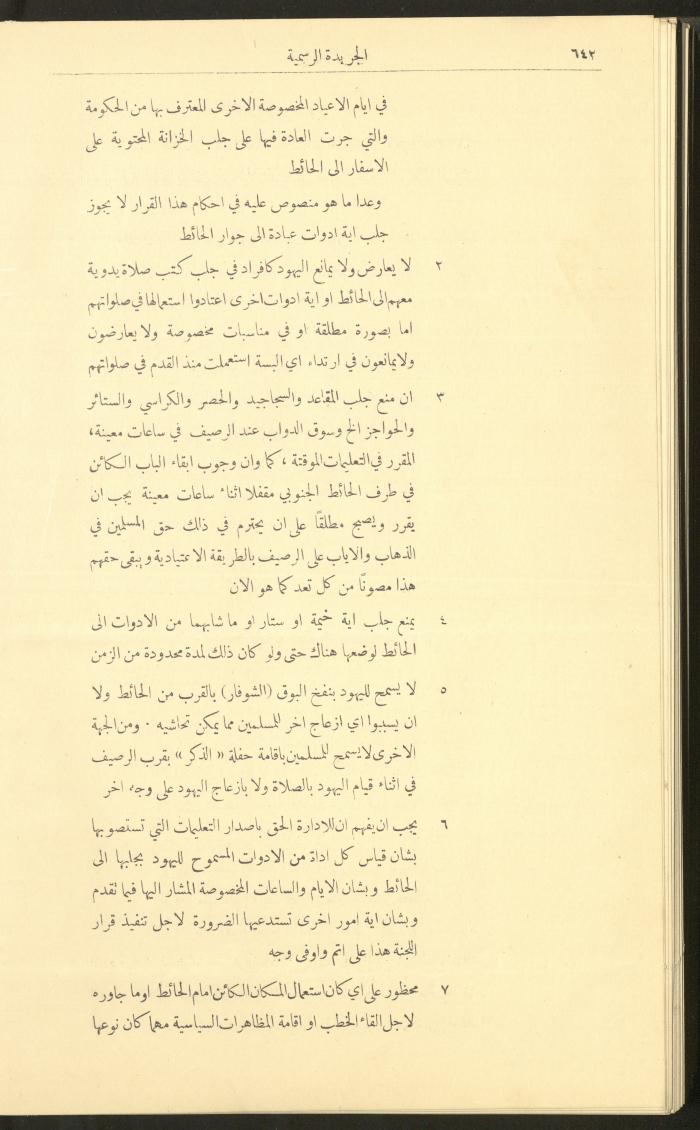 ٦٤٢
الجريدة الرسمية
في ايام الاعياد المخصوصة الاخرى المعترف بها من الحكومة
والتي جرت العادة فيها على جلب الخزانة المحتوية على
الاسفار الى الحائط
وعدا ما هو منصوص عليه في احكام هذا القرار لا يجوز
جلب اية ادوات عبادة الى جوار الحائط
٢ لا يعارض ولا يمانع اليهود كافراد في جلب كتب صلاة يدوية
معهم الى الحائط او اية ادوات اخرى اعتادوا استعمالها في صلواتهم
اما بصورة مطلقة او في مناسبات مخصوصة ولا يعارضون
ولا يمانعون في ارتداء اي البسة استعملت منذ القدم في صلواتهم
٣ ان منع جلب المقاعد والسجاجيد والحصر والكراسي والستائر
والحواجز الخ وسوق الدواب عند الرصيف في ساعات معينة،
المقرر في التعليمات الموقتة ، كما وان وجوب ابقاء الباب الكائن
في طرف الحائط الجنوبي مقفلا اثناء ساعات معينة يجب ان
يقرر ويصبح مطلقًا على ان يحترم في ذلك حق المسلمين في
الذهاب والاياب على الرصيف بالطريقة الاعتيادية ويبقى حقهم
هذا مصونًا من كل تعد كما هو الان
٤ يمنع جلب اية خيمة او ستار او ما شابهما من الادوات الى
الحائط لوضعها هناك حتى ولو كان ذلك لمدة محدودة من الزمن
٥ لا يسمح لليهود بنفخ البوق (الشوفار) بالقرب من الحائط ولا
ان يسببوا اي ازعاج اخر للمسلمين مما يمكن تحاشيه . ومن الجهة
الاخرى لا يسمح للمسلمين باقامة حفلة « الذكر » بقرب الرصيف
في اثناء قيام اليهود بالصلاة ولا بازعاج اليهود على وجه اخر
٦ يجب ان يفهم ان للادارة الحق باصدار التعليمات التي تستصوبها
بشان قياس كل اداة من الادوات المسموح لليهود بجلبها الى
الحائط وبشان الايام والساعات المخصوصة المشار اليها فيما تقدم
وبشان اية امور اخرى تستدعيها الضرورة لاجل تنفيذ قرار
اللجنة هذا على اتم واوفى وجه
٧ محظور على اي كان استعمال المكان الكائن امام الحائط او ما جاوره
لاجل القاء الخطب او اقامة المظاهرات السياسية مهما كان نوعها